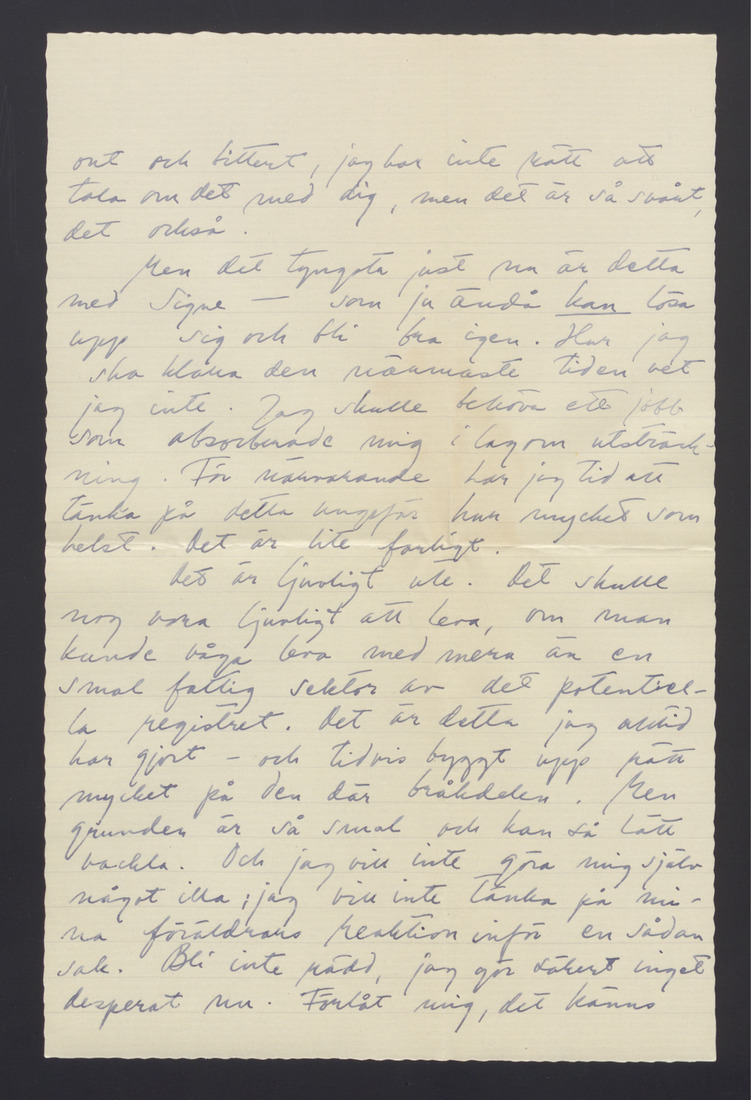 ont och bittert, jag har inte rätt att
tala om det med dig, men det är så svårt,
det också.
Men det tyngsta just nu är detta
med Signe — som ju ändå kan lösa
upp sig och bli bra igen. Hur jag
ska klara den närmaste tiden vet
jag inte. Jag skulle behöva ett jobb
som absorberade mig i lagom utsträck-
ning. För närvarande har jag tid att
tänka på detta ungefär hur mycket som
helst. Det är lite farligt.
Det är ljuvligt ute. Det skulle
nog vara ljuvligt att leva, om man
kunde våga leva med mera än en
smal fattig sektor av det potentiel-
la registret. Det är detta jag alltid
har gjort – och tidvis byggt upp rätt
mycket på den där bråkdelen. Men
grunden är så smal och kan så lätt
vackla. Och jag vill inte göra mig själv
något illa; jag vill inte tänka på mi-
na föräldrars reaktion inför en sådan
sak. Bli inte rädd, jag gör säkert inget
desperat nu. Förlåt mig, det känns